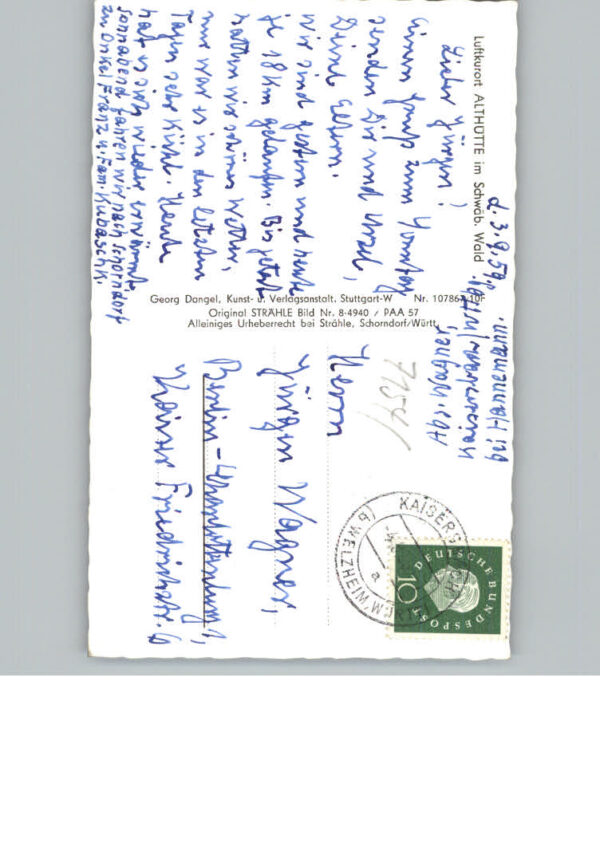 Luftkurort ALTHÜTTE im Schwäb. Wald
d. 3.9.59.
Lieber Jürgen!
Einen Gruß zum Sonntag
senden Dir und Ursel,
Deine Eltern.
Wir sind gestern und heute
je 18 km gelaufen. Bis jetzt
hatten wir schönes Wetter,
nur war es in den letzten
Tagen sehr kühl. Heute
hat es sich wieder erwärmt.
Sonnabend fahren wir nach Schorndorf
zu Onkel Franz u. Fam. Kubaschk.
Georg Dangel, Kunst- u. Verlagsanstalt, Stuttgart-W Nr. 10786
Original STRÄHLE Bild Nr. 8-4940 / PAA 57
Alleiniges Urheberrecht bei Strähle, Schorndorf/Württ.
Abs. Wagner,
bei Hannemann
Herrn
Jürgen Wagner,
Berlin-Charlottenburg 1,
Kaiser Friedrichstr. 6
KAISERSBACH
WELZHEIM
a
DEUTSCHE BUNDESPOST
10